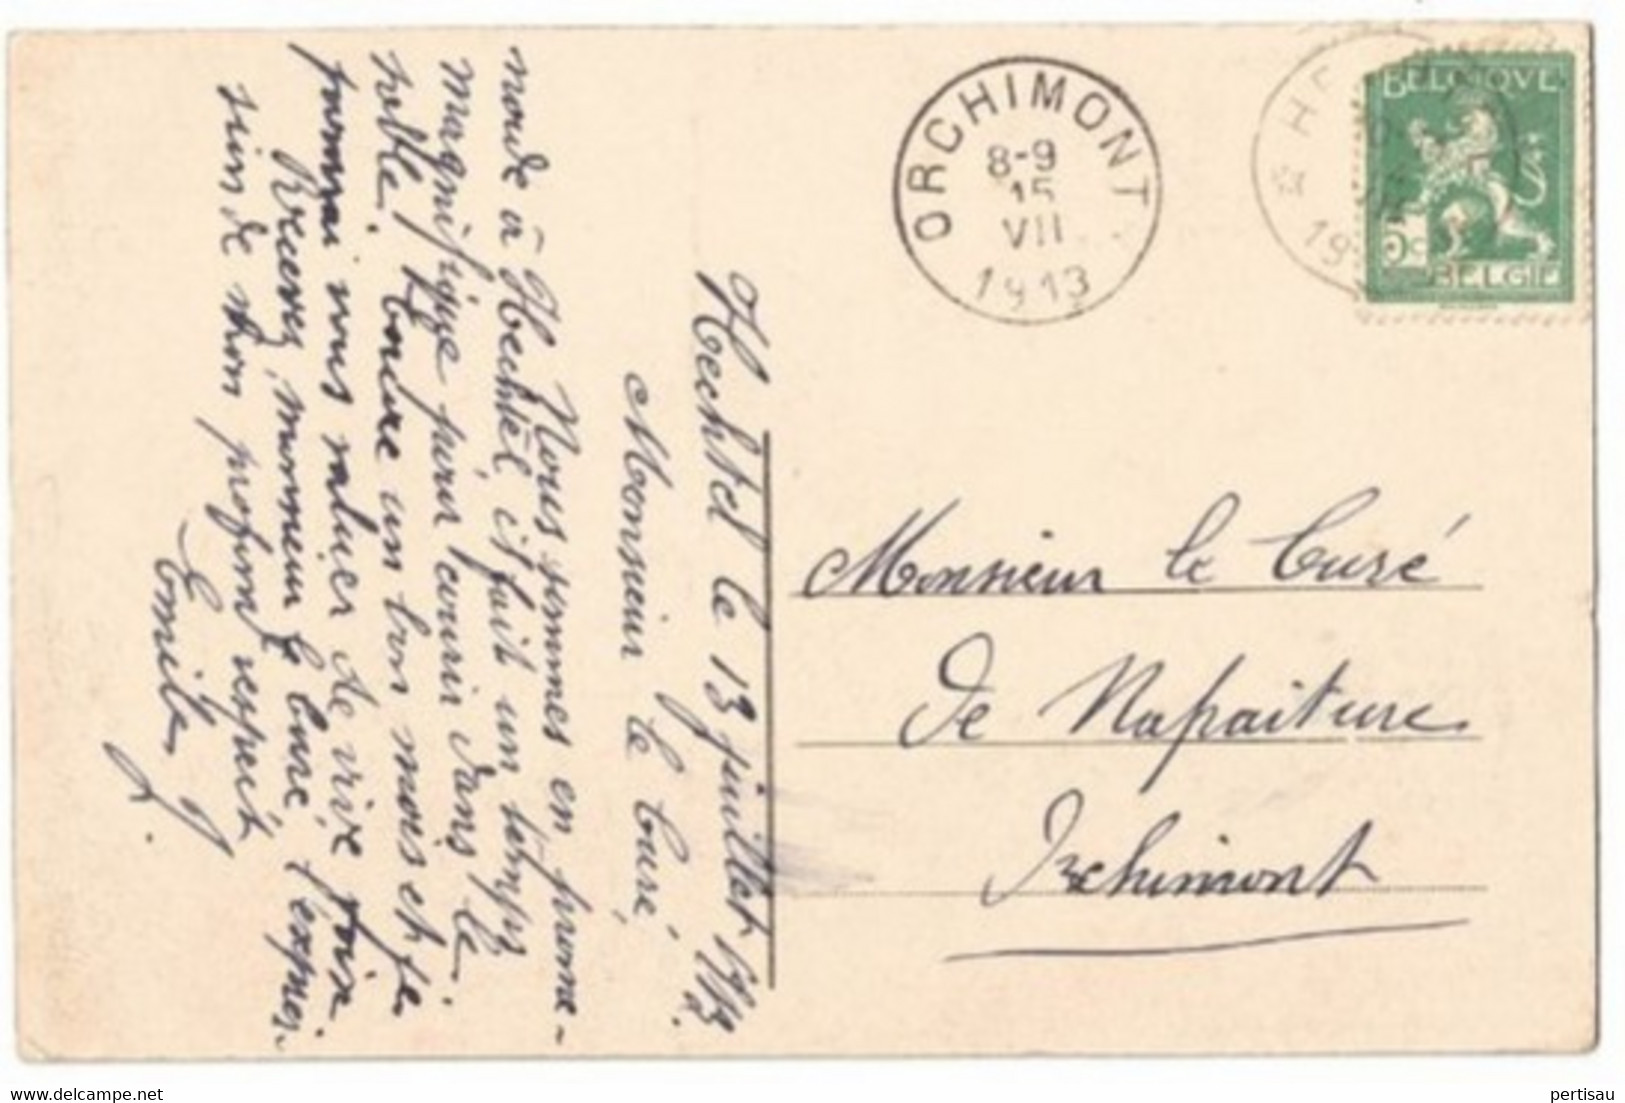 Hechtel le 13 juillet 1913.
Monsieur le Curé,
Nous sommes en prome-
nade à Hechtel, il fait un temps
magnifique pour courir dans le
sable. Encore un bon mois et je
pourrai vous saluer de vive voix
Recevez, monsieur le Curé, l'expres-
sion de mon profond respect
Emile
ORCHIMONT
8-9
15
VII
1913
HE
19
BELGIQUE
5c
BELGIË
Monsieur le Curé
de Nafraiture
Orchimont
pertisau